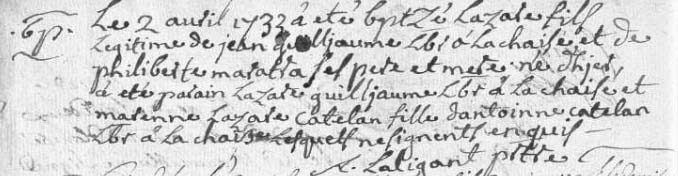 Bp. Le 2 avril 1733 a eté bptzé Lazare fils
legitime de jean guilljaume Lbr a La chaise et de
philiberte maratra ses pere et mere né d'hjer,
a eté parain Lazare guilljaume Lbr a La chaise et
marenne Lazare catelan fille dantoinne catelan
Lbr a La chaise Lesquels ne signent enquis
L. Laligant ptre